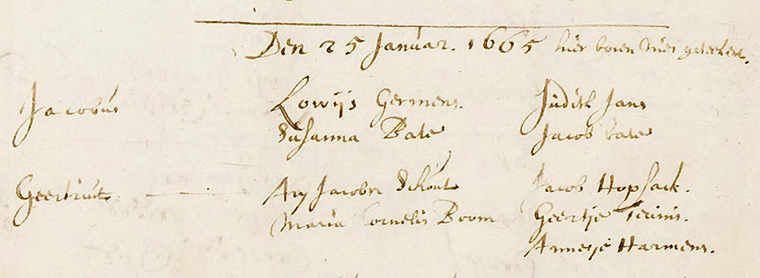 Den 25 Januar. 1665 hier boven
Jacobus Lowijs Germens. Judith Jans
Susanna Bate Jacob bate
Geertruit Ary Jacobse Schout Jacob Hopsack.
Maria Cornelis Boom Geertje Teunis.
Annetje Harmens.